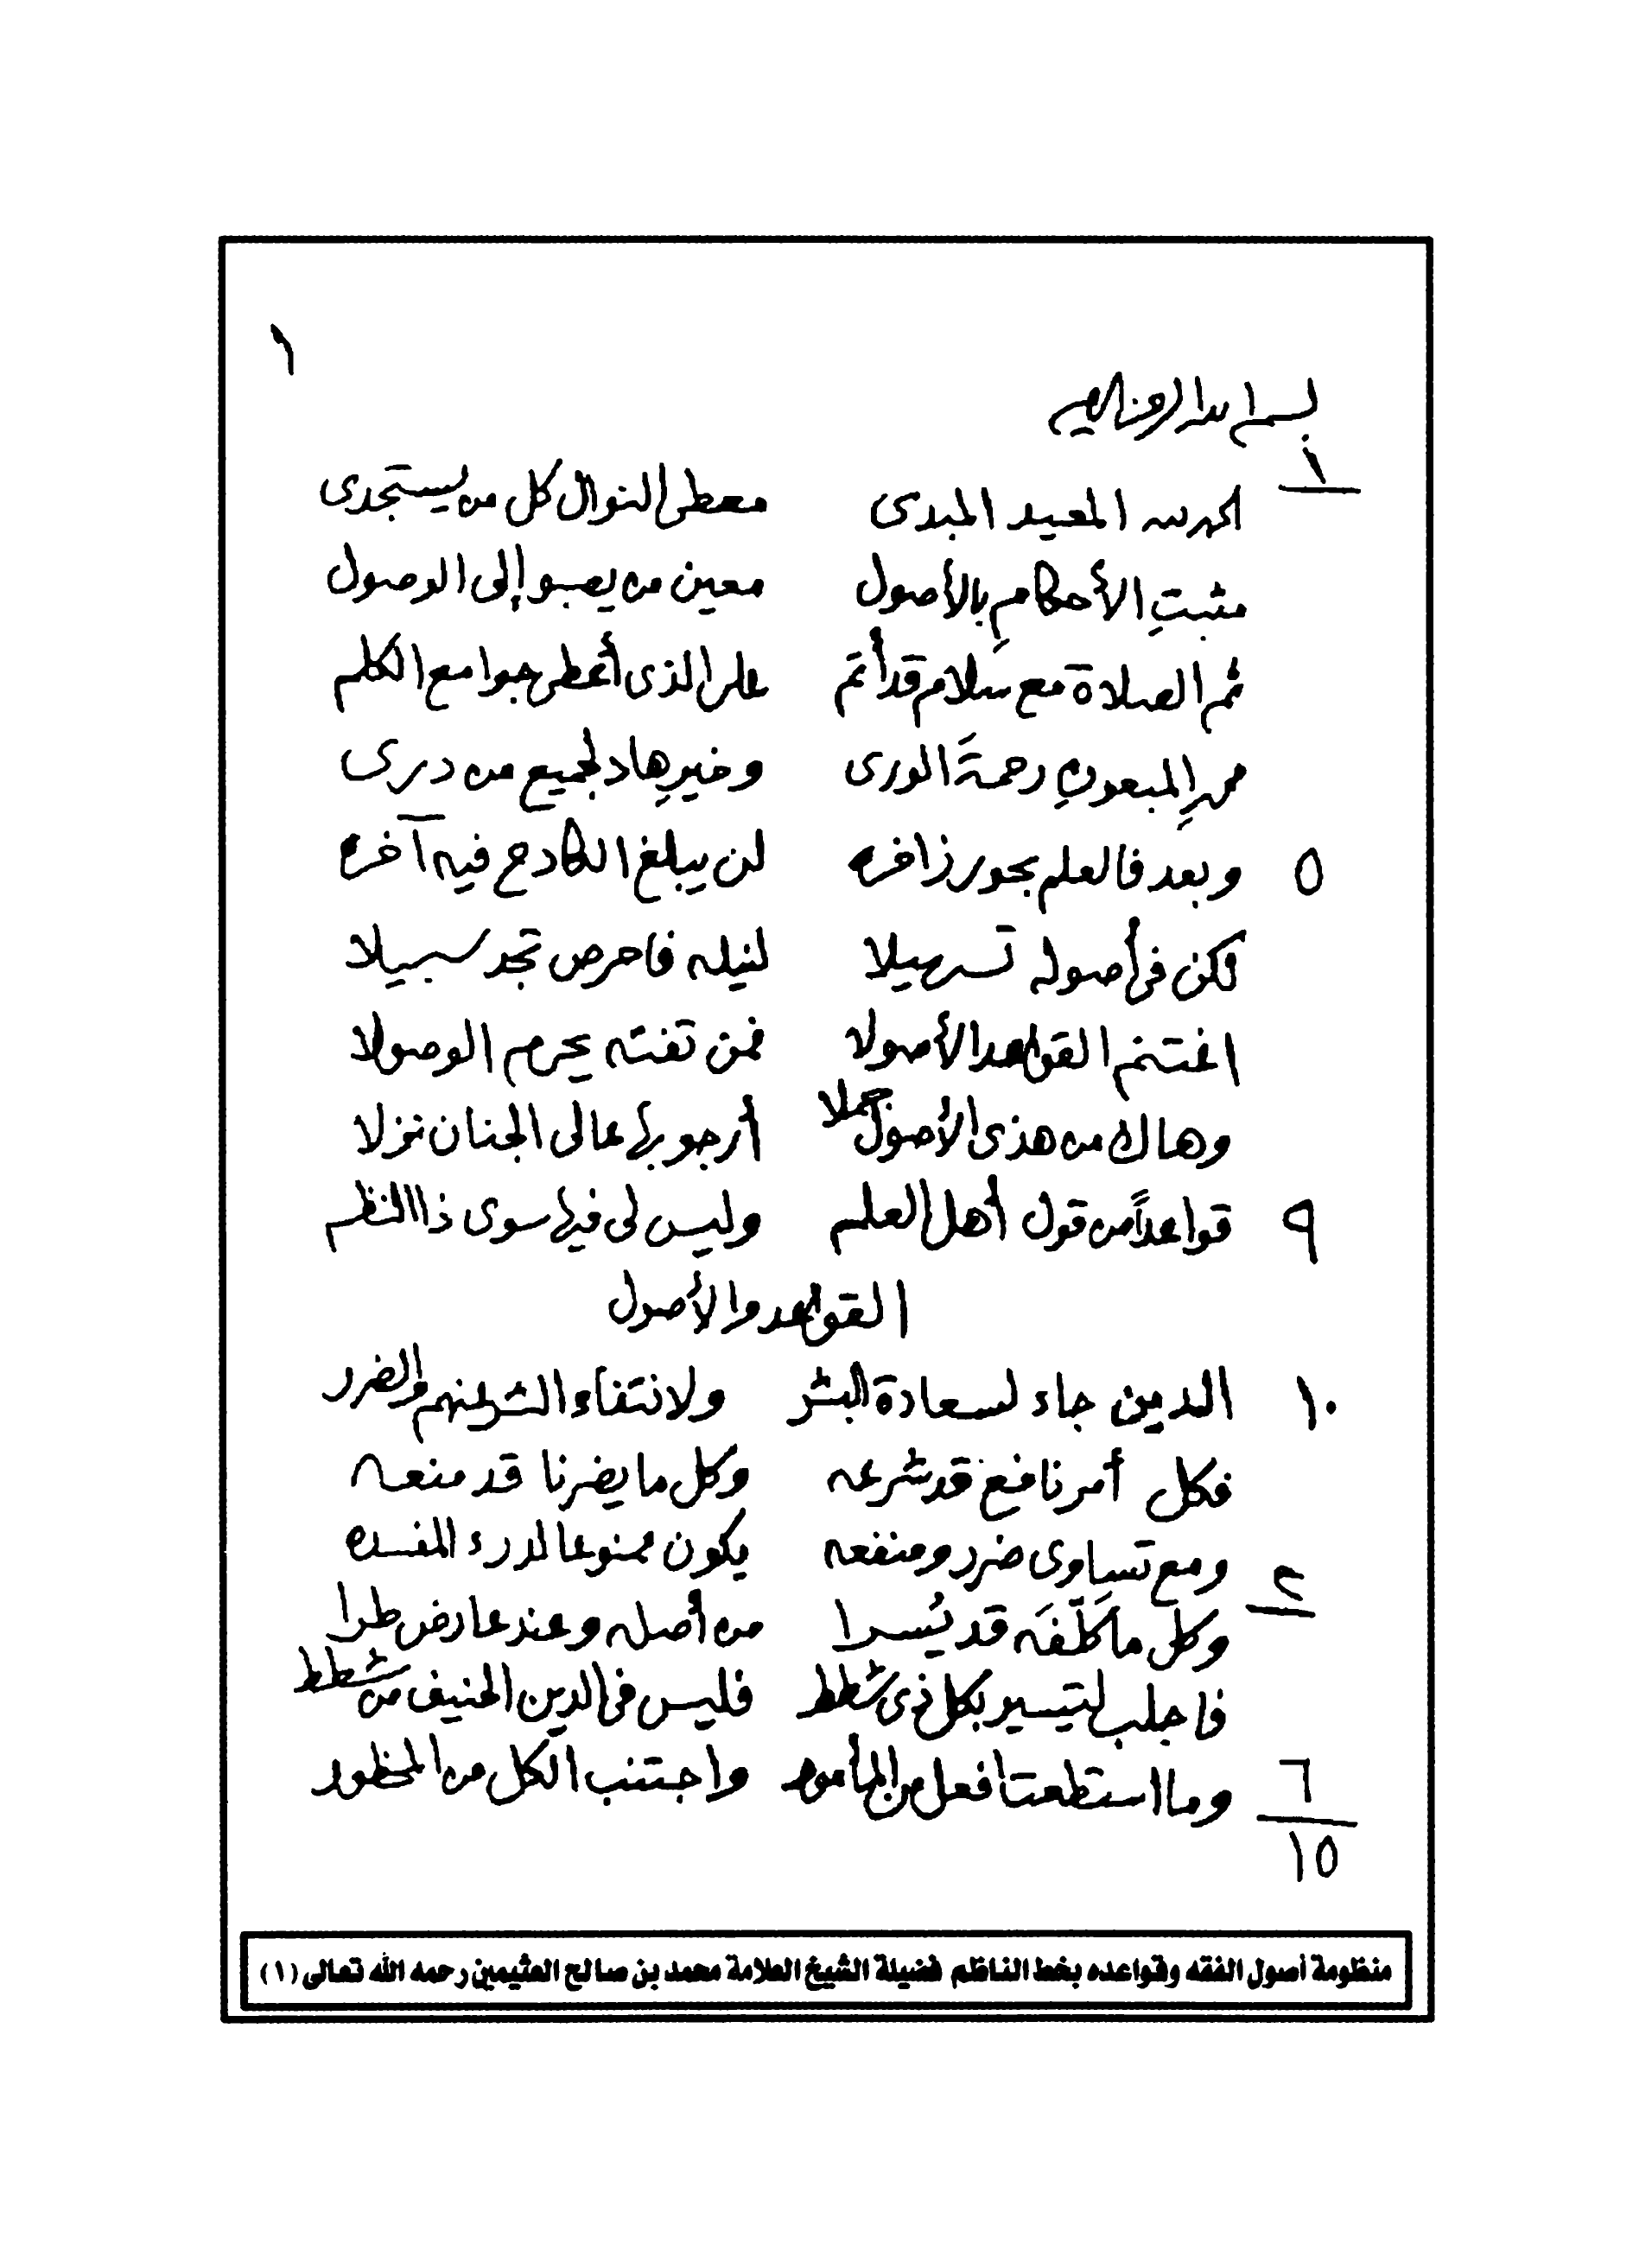 ١
بسم الله الرحمن الرحيم
١
الحمد لله المعيد المبدى معطى النوال كل من يستجدى
مثبتِ الأحكامِ بالأصول معين من يصبو إلى الوصول
ثم الصلاة مع سَلامٍ قد أتم على الذى أعطى جوامع الكلم
محمدٍ المبعوثِ رحمةَ الورى وخيرِ هاد لجميع من درى
٥ وبعد فالعلم بحور زاخره لن يبلغ الكادح فيه آخره
لكن فى أصوله تسهيلا لنيله فاحرص تجد سبيلا
اغتنم القواعد الأصولا فمن تفته يحرم الوصولا
وهاك من هذى الأصول جملا أرجو بها عالى الجنان نزلا
٩ قواعداً من قول أهل العلم وليس لى فيها سوى ذا النظم
القواعد والأصول
١٠ الدين جاء لسعادة البشر ولانتفاء الشر عنهم والضرر
فكل أمر نافع قد شرعه وكل ما يضرنا قد منعه
ومع تساوى ضرر ومنفعه يكون ممنوعا لدرء المفسده
٤
وكل ما كلّفَه قد يُسرا من أصله وعند عارض طرا
فاجلب لتيسير بكل ذى شطط فليس فى الدين الحنيف من شطط
وما استطعت افعل من المأمور واجتنب الكل من المحظور
٦
١٥
منظومة أصول الفقه وقواعده بخط الناظم فضيلة الشيخ العلامة محمد بن صالح العثيمين رحمه الله تعالى (١)